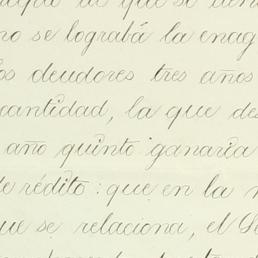 no se lograbá la enag
os deudores tres años
cantidad, la que des
año quinto ganaria
de rédito: que en la
que se relaciona, el Se